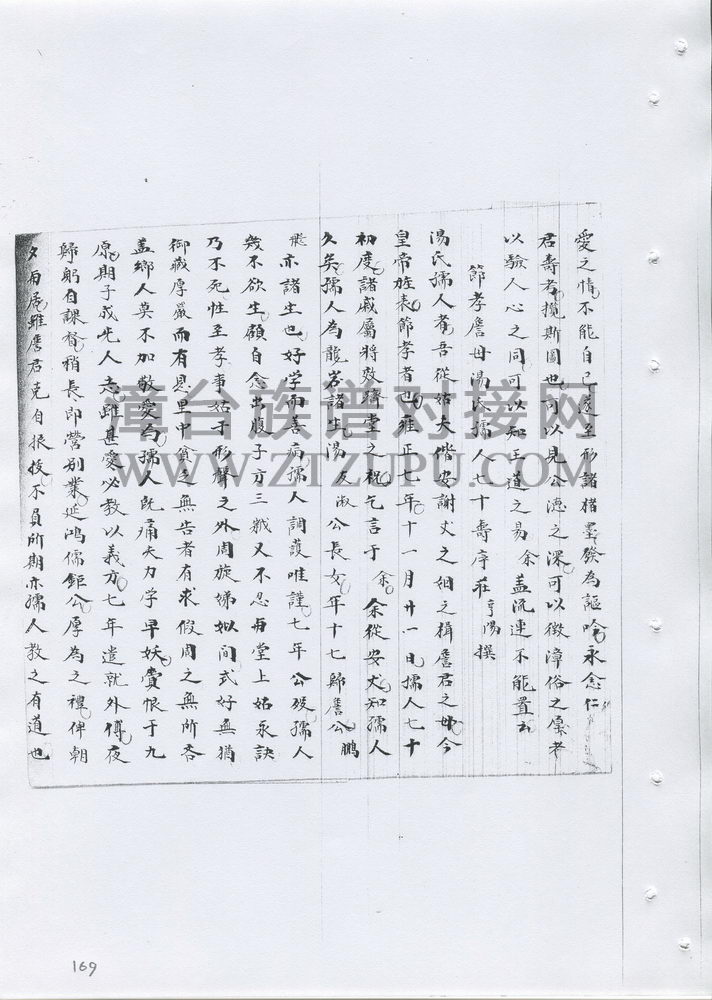 愛之情不能自已遂至形諸楮墨發為謳吟永念仁
君壽考攬斯圖也可以見公德之深可以徵漳俗之厚者
以驗人心之同可以知王道之易余盖流連不能置云
節孝詹母湯太孺人七十壽序莊亨陽撰
湯氏孺人者吾從姑夫偕安謝丈之姻之楫詹君之母今
皇帝旌表節孝者也雍正七年十一月廿一日孺人七十
初度諸戚屬將效躋堂之祝乞言于余余從安丈知孺人
久矣孺人為龍岩諸生湯友淑公長女年十七歸詹公鵬
亦諸生也好学而善病孺人調護唯謹七年公歿孺人
幾不欲生顧自念出腹子方三歲又不忍再堂上姑永訣
乃不死性至孝事姑于形聲之外周旋娣姒间式好無猶
御臧厚嚴而有恩里中貧乏無告者有求假周之無所吝
盖鄉人莫不加敬愛焉孺人既痛夫力学早妖賫恨于九
原期子成光人志雖甚愛必教以義方七年遣就外傅夜
歸躬自課督稍長即营别業延鴻儒鉅公厚為之禮俾朝
夕而處雖詹君克自振拔不負所期亦孺人教之有道也
漳台族谱对接网
WWW.ZTZUPU.COM
169